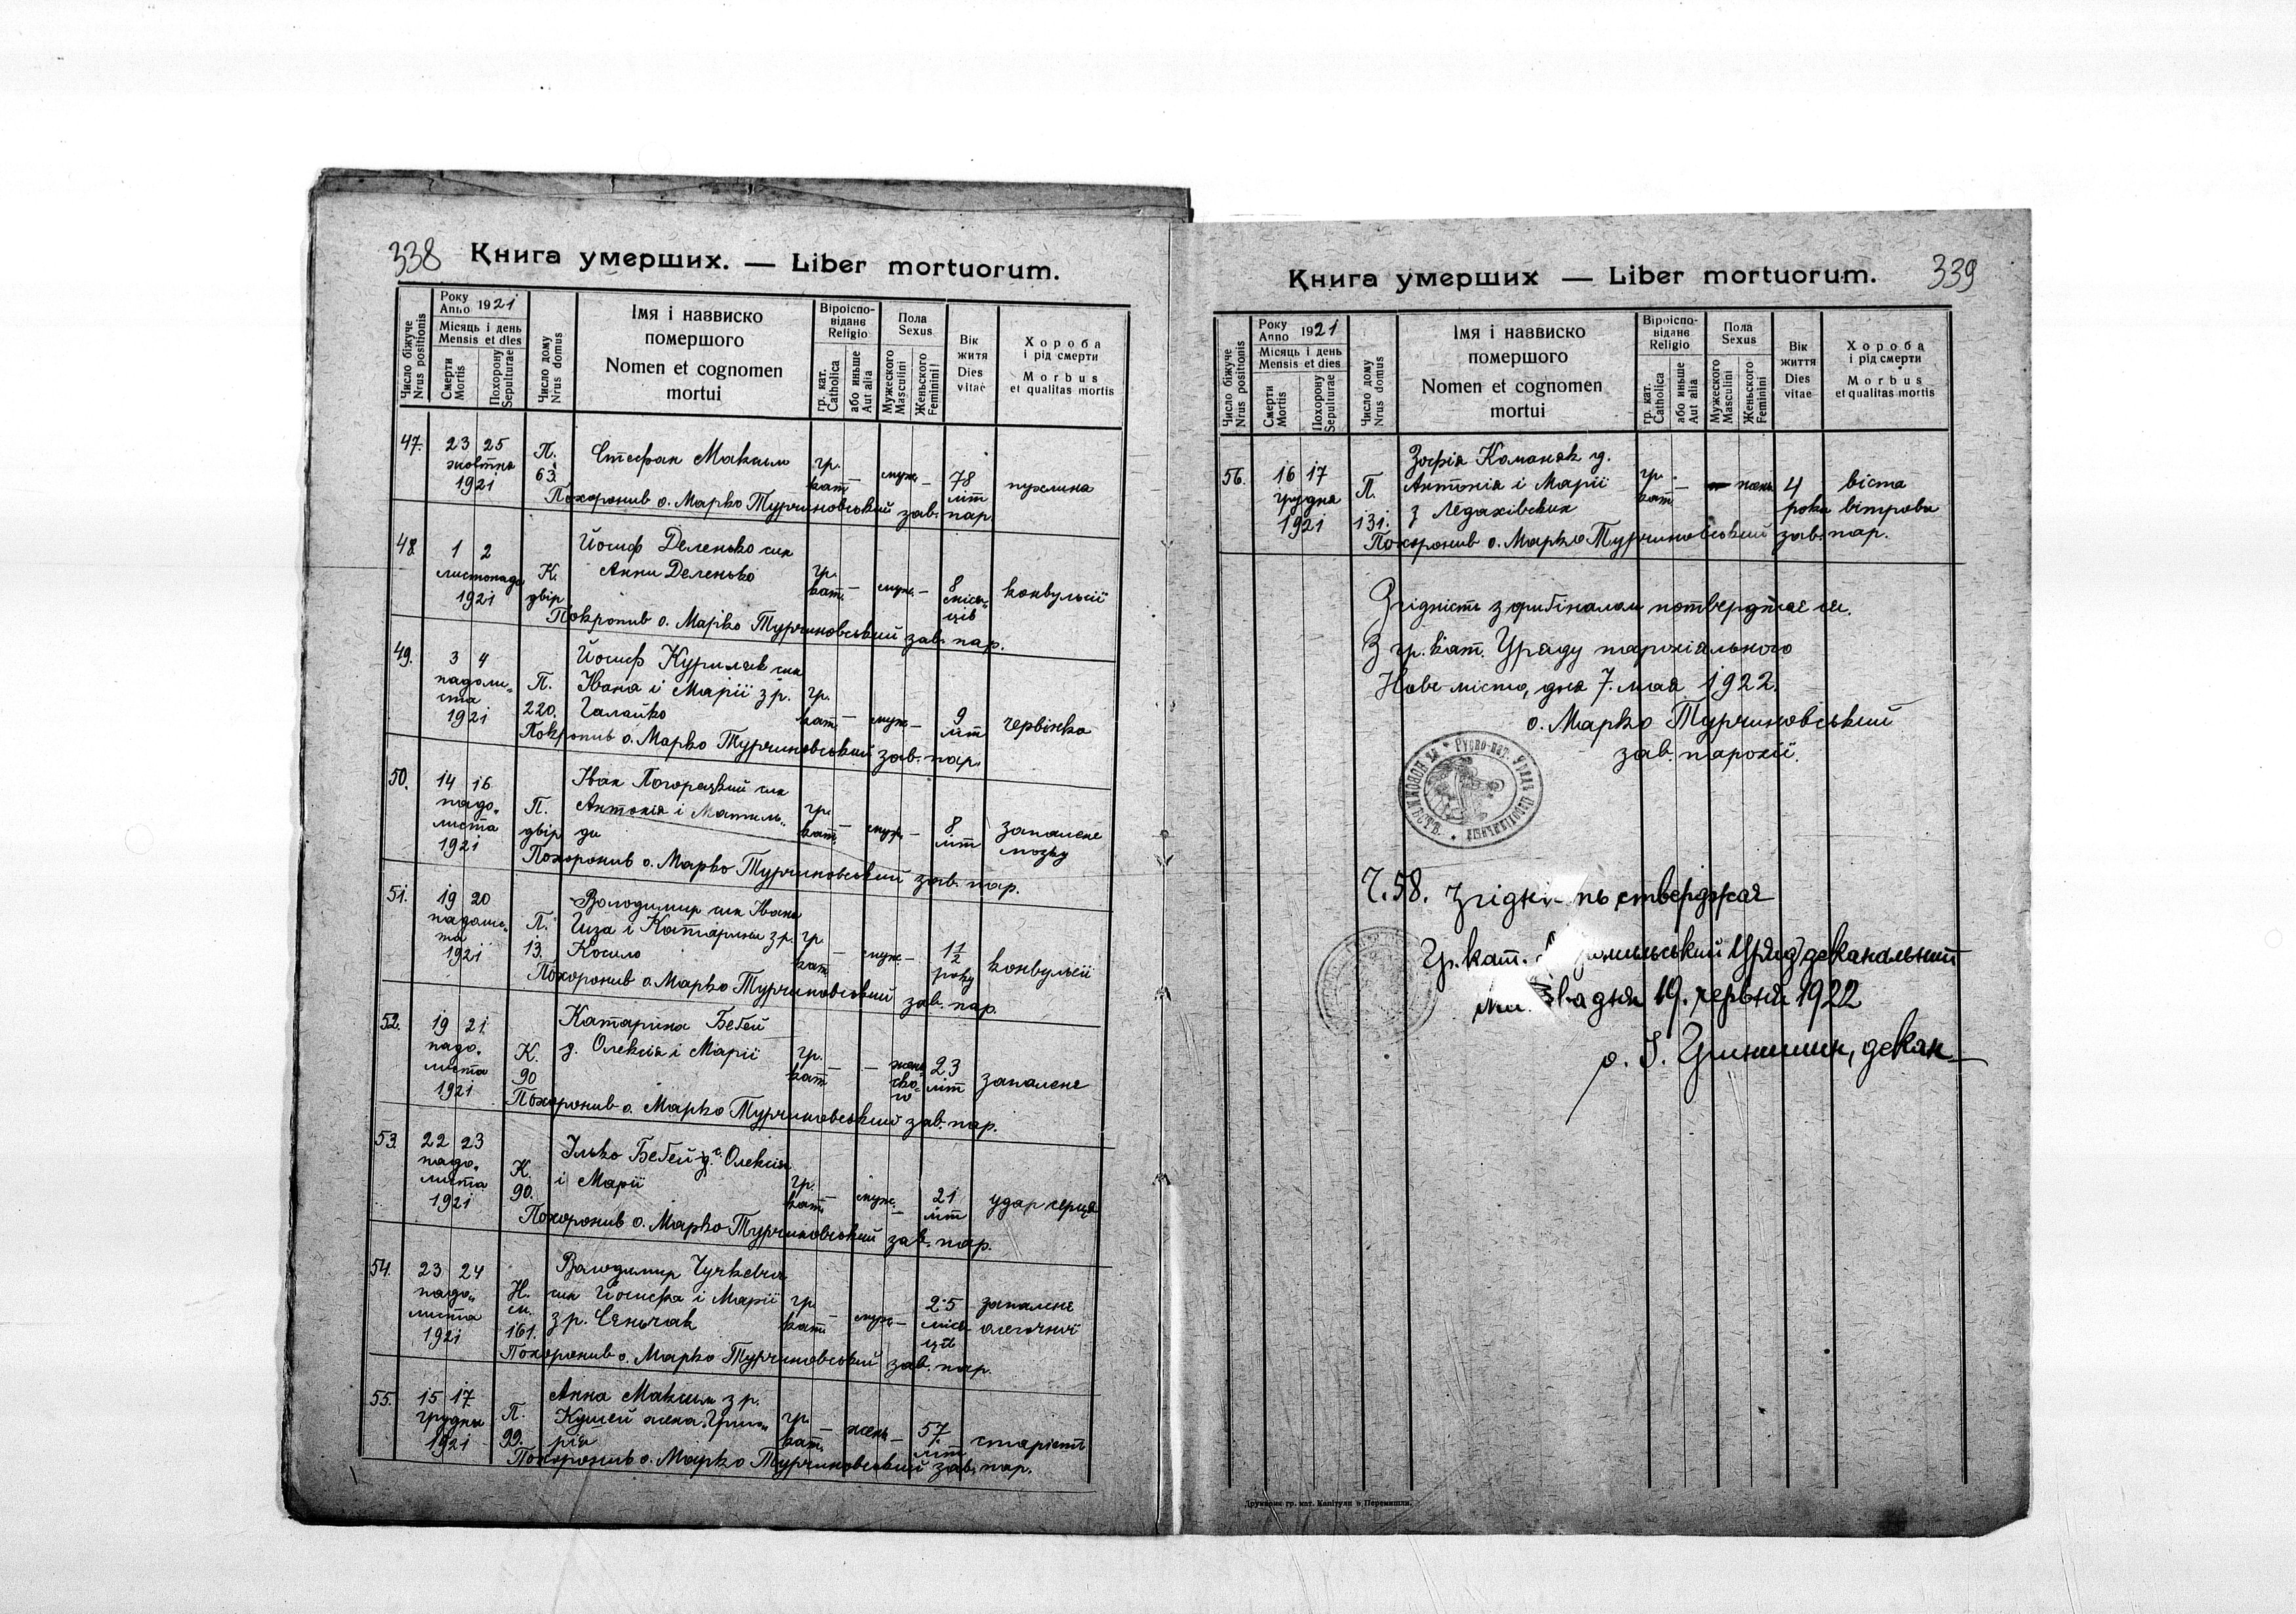 338
Книга умерших. — Liber mortuorum.
Число біжуче
Nrus positionis
Року
Anno 1921
Місяць і день
Mensis et dies
Смерти
Mortis
Похорону
Sepulturae
Число дому
Nrus domus
Імя і наввиско
помершого
Nomen et cognomen
mortui
Віроіспо-
відане
Religio
гр. кат.
Catholica
або иньше
Aut alia
Пола
Sexus
Мужеского
Masculini
Женьского
Feminini
Вік
житя
Dies
vitae
Хороба
і рід смерти
Morbus
et qualitas mortis
47. 23 25 жовтня 1921 П. 63. Стефан Максим гр. кат. — муж. — 78 літ пухлина
Похоронив о. Марко Турчиновський зав. пар.
48. 1 2 листопада 1921 К. двір Йосиф Деленько син
Анни Деленько гр. кат. — муж. — 8 місяців конвульсії
Покропив о. Марко Турчиновський зав. пар.
49. 3 4 падолиста 1921 П. 220. Йосиф Куриляк син
Івана і Марії з р. гр. кат. — муж. — 9 літ червінка
Галайко
Покропив о. Марко Турчиновський зав. пар.
50. 14 16 падолиста 1921 П. двір Іван син
Антонія і Матиль-
ди гр. кат. — муж. — 8 літ запаленє мозку
Похоронив о. Марко Турчиновський зав. пар.
51. 19 20 падолиста 1921 П. 13. Володимир син Івана
і Катарини з р. гр. кат. — муж. — 1 1/2 року конвульсії
Косило
Похоронив о. Марко Турчиновський зав. пар.
52. 19 21 падолиста 1921 К. 90 Катарина Бебей
д. Олексія і Марії гр. кат. — — женьского 23 літ запаленє
Похоронив о. Марко Турчиновський зав. пар.
53. 22 23 падолиста 1921 К. 90. Ілько Бебей с. Олексія
і Марії гр. кат. — муж. — 21 літ удар серця
Похоронив о. Марко Турчиновський зав. пар.
54. 23 24 падолиста 1921 Н. м. 161. Володимир
син Йосифа і Марії
з р. Сеньчак гр. кат. — муж. — 2·5 місяців запаленє
Похоронив о. Марко Турчиновський зав. пар.
55. 15 17 грудня 1921 П. 99. Анна Максим з р.
Кушей жена Григо-
рія гр. кат. — жень. — 57 літ старість
Похоронив о. Марко Турчиновський зав. пар.
339
Книга умерших — Liber mortuorum.
Число біжуче
Nrus positionis
Року
Anno 1921
Місяць і день
Mensis et dies
Смерти
Mortis
Похорону
Sepulturae
Число дому
Nrus domus
Імя і наввиско
помершого
Nomen et cognomen
mortui
Віроіспо-
відане
Religio
гр. кат.
Catholica
або иньше
Aut alia
Пола
Sexus
Мужеского
Masculini
Женьского
Feminini
Вік
життя
Dies
vitae
Хороба
і рід смерти
Morbus
et qualitas mortis
56. 16 17 грудня 1921 П. 131. Зофія Команяк д.
Антонія і Марії
з Ледахівских гр. кат. — — жень 4 роки віспа вітрова
Похоронив о. Марко Турчиновський зав. пар.
Згідність з оригіналом потверджає ся.
З гр. кат. Уряду парохіяльного
Нове місто, дня 7. мая 1922.
о. Марко Турчиновський
зав. парохії.
Ч. 58. стверджає
Гр. кат. Уряд деканальний
дня 19. червня 1922
о. декан
Друкарня гр. кат. Капітули в Перемишли.